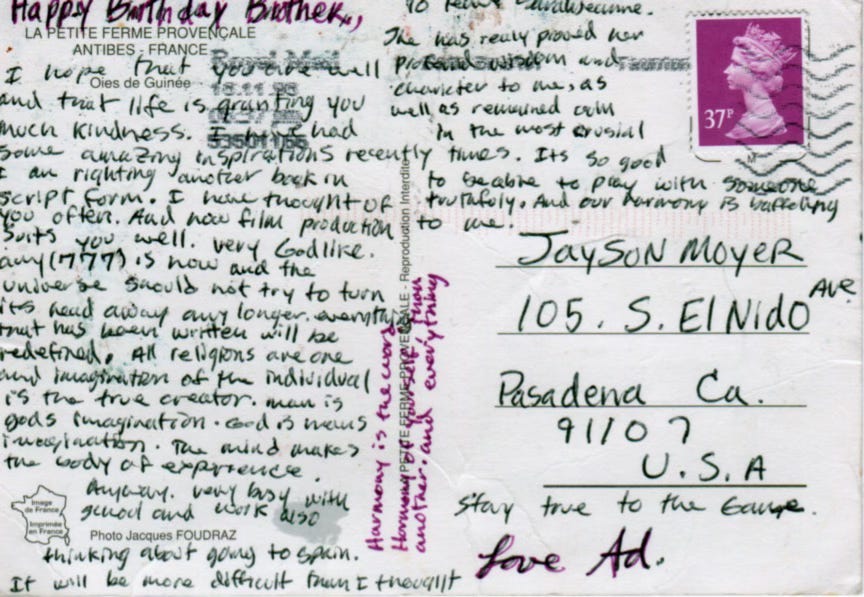 Happy Birthday Brother,,
LA PETITE FERME PROVENÇALE
ANTIBES - FRANCE
Oies de Guinée
I hope that you are well
and that life is granting you
much kindness. I have had
some amazing inspirations recently
I am righting another book in
script form. I have thought of
you often. And now film production
suits you well. very Godlike.
any (777) is now and the
universe should not try to turn
its head away any longer. everything
that has been written will be
redefined. All religions are one
and imagination of the individual
is the true creator. man is
gods imagination. God is mans
imagination. The mind makes
the body of experience.
Anyway. very busy with
school and work also
thinking about going to spain.
It will be more difficult than I thought
Image
de France
Imprimée
en France
Photo Jacques FOUDRAZ
to
She has realy proved her
profound wisdom and
character to me, as
well as remained calm
in the most crusial
times. Its so good
to be able to play with someone
truthfuly. And our harmony is
to me.
Royal Mail
18.11.98
53501066
Taunton
37P
M
LA PETITE FERME PROVENÇALE - Reproduction Interdite
Harmony is the word
Harmony of yourself, then
another. and everything
JAYSON MOYER
105. S. El NidO AVE.
Pasadena Ca.
91107
U.S.A
Stay true to the
Love Ad.